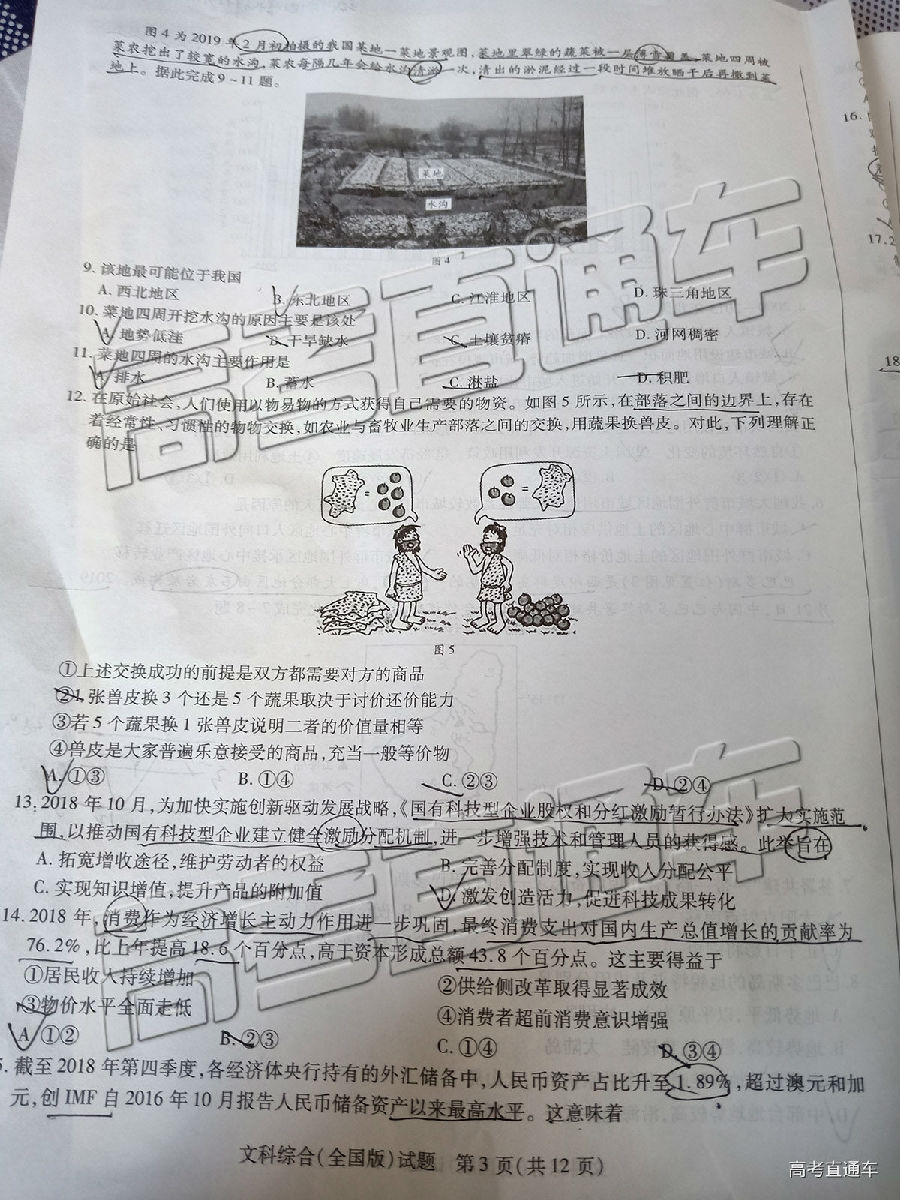 图4为2019年2月初拍摄的我国某地一菜地景观图,菜地里翠绿的蔬菜被一层薄雪覆盖,菜地四周被
菜农挖出了较宽的水沟,菜农每隔几年会给水沟清淤一次,清出的淤泥经过一段时间堆放晒干后再撒到菜
地上。据此完成9~11题。
菜地
水沟
图4
9. 该地最可能位于我国
A. 西北地区 B. 东北地区 C. 江淮地区 D. 珠三角地区
10. 菜地四周开挖水沟的原因主要是该处
A. 地势低洼 B. 干旱缺水 C. 土壤贫瘠 D. 河网稠密
11. 菜地四周的水沟主要作用是
A. 排水 B. 蓄水 C. 淋盐 D. 积肥
12. 在原始社会,人们使用以物易物的方式获得自己需要的物资。如图5所示,在部落之间的边界上,存在
着经常性、习惯性的物物交换,如农业与畜牧业生产部落之间的交换,用蔬果换兽皮。对此,下列理解正
确的是
图5
①上述交换成功的前提是双方都需要对方的商品
②1张兽皮换3个还是5个蔬果取决于讨价还价能力
③若5个蔬果换1张兽皮说明二者的价值量相等
④兽皮是大家普遍乐意接受的商品,充当一般等价物
A. ①③ B. ①④ C. ②③ D. ②④
13. 2018年10月,为加快实施创新驱动发展战略,《国有科技型企业股权和分红激励暂行办法》扩大实施范
围,以推动国有科技型企业建立健全激励分配机制,进一步增强技术和管理人员的获得感。此举旨在
A. 拓宽增收途径,维护劳动者的权益 B. 完善分配制度,实现收入分配公平
C. 实现知识增值,提升产品的附加值 D. 激发创造活力,促进科技成果转化
14. 2018年,消费作为经济增长主动力作用进一步巩固,最终消费支出对国内生产总值增长的贡献率为
76.2%,比上年提高18.6个百分点,高于资本形成总额43.8个百分点。这主要得益于
①居民收入持续增加 ②供给侧改革取得显著成效
③物价水平全面走低 ④消费者超前消费意识增强
A. ①② B. ②③ C. ①④ D. ③④
5. 截至2018年第四季度,各经济体央行持有的外汇储备中,人民币资产占比升至1.89%,超过澳元和加
元,创IMF自2016年10月报告人民币储备资产以来最高水平。这意味着
文科综合(全国版)试题 第3页(共12页)
16.
17. 2
18
高考直通车
高考直通车
高考直通车